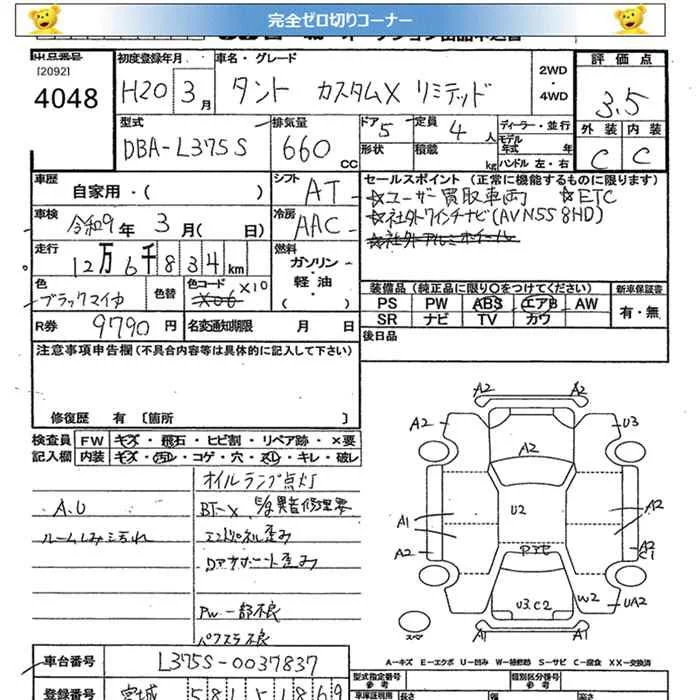 完全ゼロ切りコーナー
出品番号
[2092]
4048
初度登録年月
H20 3月
車名・グレード
タント カスタムX リミテッド
2WD
・
4WD
評価点
3.5
外装 内装
C C
型式
DBA-L375S
排気量
660 CC
ドア 5
形状
定員 4 人
積載 kg
ディーラー・並行
モデル
年式 年
ハンドル 左・右
車歴
自家用・( )
シフト
AT
車検
令和9年 3月( 日)
冷房
AAC
走行
12万6千834km
燃料
ガソリン
・
軽油
・
( )
色
ブラックマイカ
色替
色コード
X06 X10
R券 9790円
名変通知期限 月 日
セールスポイント (正常に機能するものに限ります)
☆ユーザー買取車両 ☆ETC
☆社外ワインチナビ(AVN558HD)
☆社外アルミホイール
装備品 (純正品に限り○をつけてください)
PS PW ABS エアB AW
SR ナビ TV カワ
新車保証書
有・無
後日品
注意事項申告欄(不具合内容等は具体的に記入して下さい)
修復歴 有 〔箇所 〕
検査員 FW キズ・飛石・ヒビ割・リペア跡・×要
記入欄 内装 キズ・汚レ・コゲ・穴・スレ・キレ・破レ
オイルランプ点灯
A.U
BT-X
ルームしみ汚れ
エンドパネル歪み
PW一部不良
パワスラ不良
A2 A2
A2 U3
A2
U2
A1 A2
A2 A2
C1
U3.C2
W2 UA2
A1 A1
スペア
A-キズ E-エクボ U-凹み W-補修跡 S-サビ C-腐食 XX-交換済
車台番号
L375S-0037837
登録番号
宮城 581
型式指定番号
参考
類別区分番号
参考
車庫証明用
長さ
幅
高さ